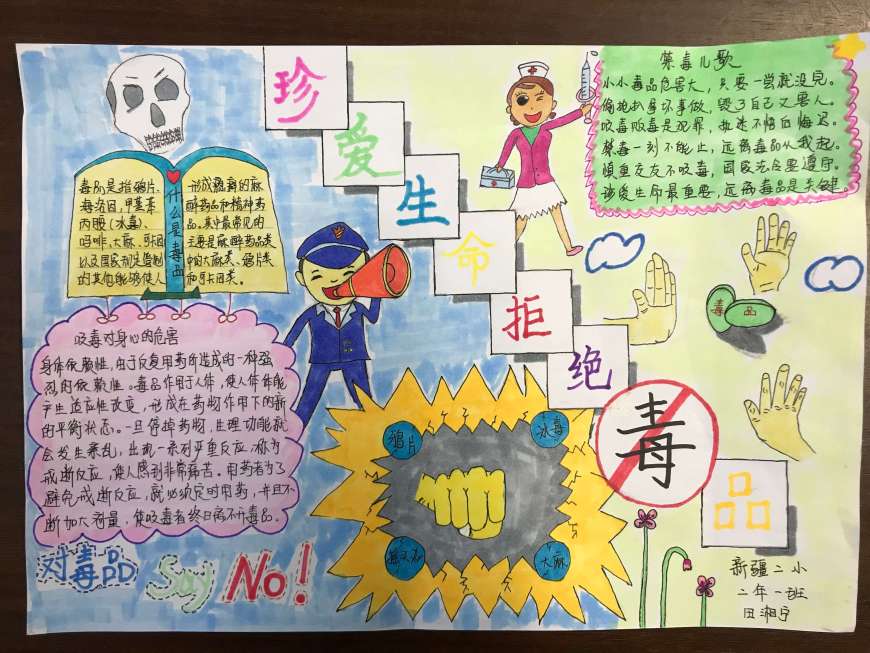 珍
爱
生
命
拒
绝
毒
品
禁毒儿歌
小小毒品危害大，只要一尝就没完。
偷抢扒拿坏事做，毁了自己又害人。
吸毒贩毒是犯罪，执迷不悟后悔迟。
禁毒一刻不能止，远离毒品从我起。
慎重交友不吸毒，国家法合要遵守。
珍爱生命最重要，远离毒品是关键。
什么是毒品
毒品是指鸦片、
海洛因，甲基苯
丙胺（冰毒）、
吗啡、大麻、可卡因
以及国家规定管制
的其他能够使人
形成瘾癖的麻
醉药品和精神药
品。其中最常见的
主要是麻醉药品类
中的大麻类、鸦片类
和可卡因类。
吸毒对身心的危害
身体依赖性，由于反复用药所造成的一种强
烈的依赖性。毒品作用于人体，使人体体能
产生适应性改变，形成在药物作用下的新
的平衡状态。一旦停掉药物，生理功能就
会发生紊乱，出现一系列严重反应，称为
戒断反应，使人感到非常痛苦。用药者为了
避免戒断反应，就必须定时用药，并且不
断加大剂量，使吸毒者终日离不开毒品。
对毒品 Say No!
鸦片
冰毒
大麻
毒品
新疆二小
二年一班
田湘宁